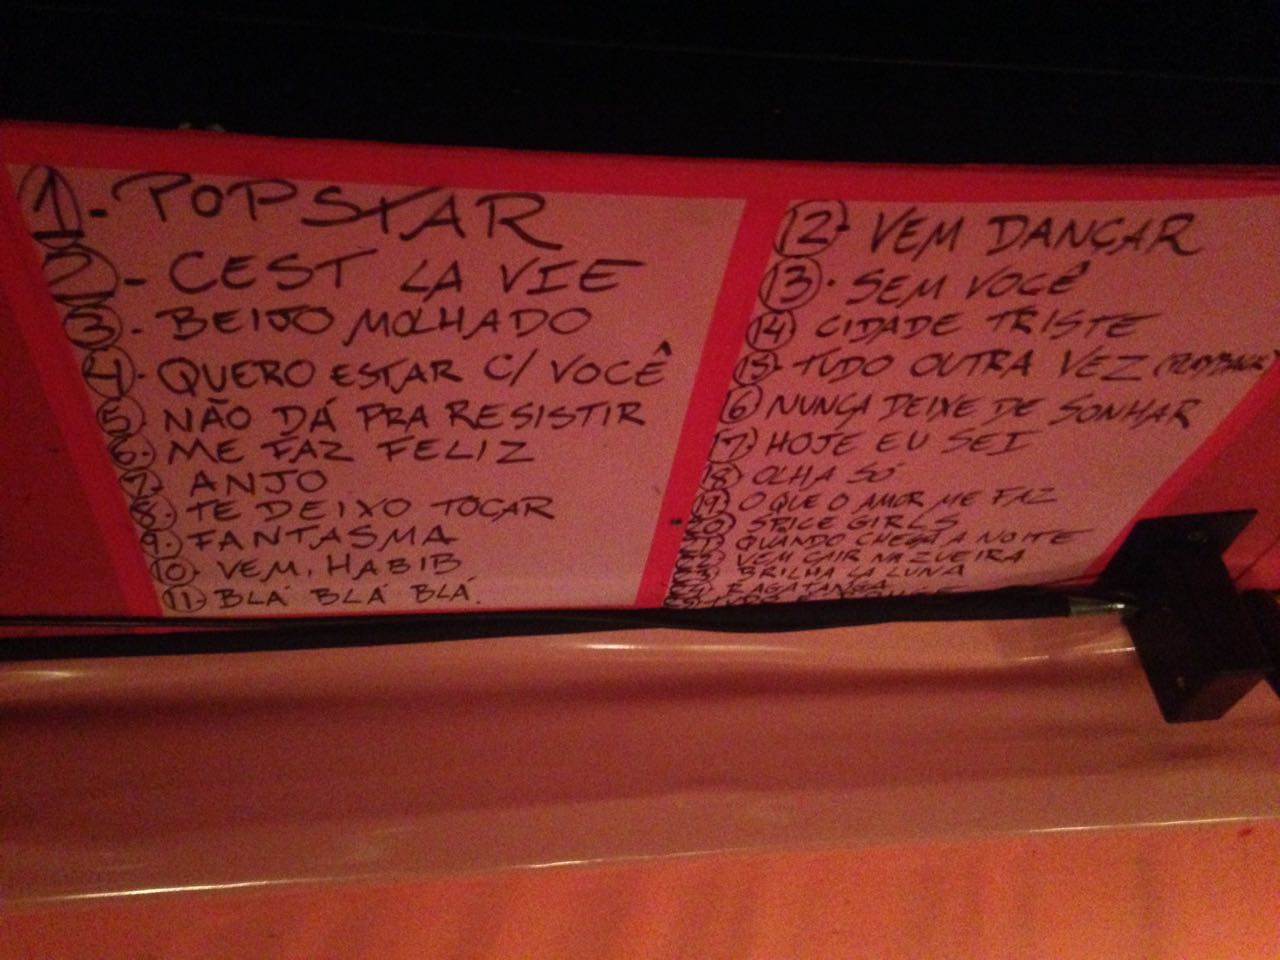 1- POPSTAR
2- CEST LA VIE
3- BEIJO MOLHADO
4- QUERO ESTAR C/ VOCÊ
5- NÃO DÁ PRA RESISTIR
6- ME FAZ FELIZ
7- ANJO
8- TE DEIXO TOCAR
9- FANTASMA
10- VEM, HABIB
11- BLÁ BLÁ BLÁ.
12- VEM DANÇAR
13- SEM VOCÊ
14 CIDADE TRISTE
15- TUDO OUTRA VEZ (PLAYBACK)
16 NUNCA DEIXE DE SONHAR
17- HOJE EU SEI
18 OLHA SÓ
19- O QUE O AMOR ME FAZ
20 SPICE GIRLS
QUANDO CHEGA A NOITE
VEM CAIR NA ZUEIRA
BRILHA LA LUNA
RAGATANGA